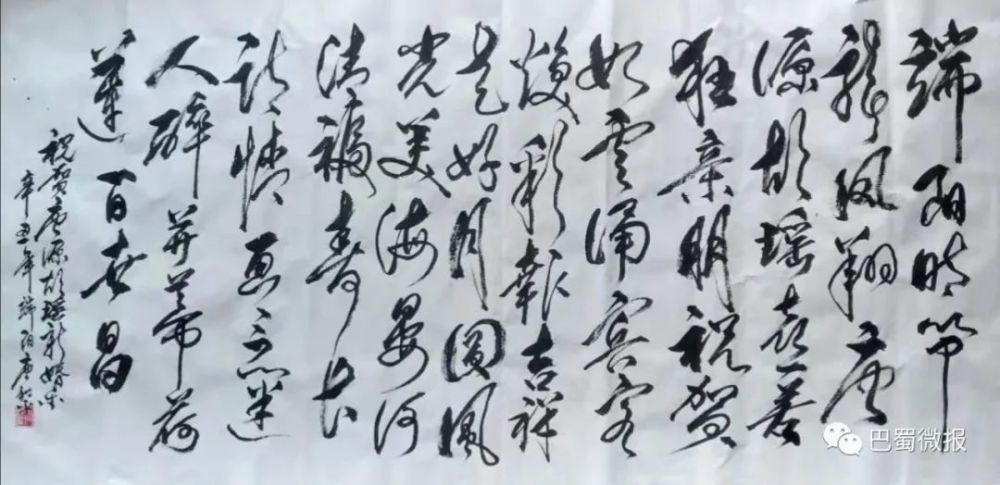 端阳时节
龙凤翔唐
源胡瑶喜若
狂亲朋祝贺
如云涌宾客
焕彩报吉祥
花好月圆风
光美海晏河
清福寿长
诗情画意迷
人醉并蒂荷
莲百世昌
祝贺唐源胡瑶新婚乐
辛丑年端阳唐
巴蜀微报